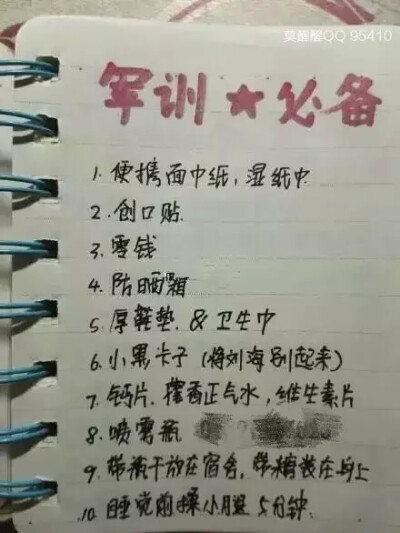 莫醒醒QQ 95410
军训★必备
1. 便携面巾纸，湿纸巾
2. 创口贴
3. 零钱
4. 防晒霜
5. 厚鞋垫 & 卫生巾
6. 小黑卡子（将刘海别起来）
7. 钙片、藿香正气水，维生素片
8. 喷雾瓶
9. 带瓶干放在宿舍，带糖装在身上
10. 睡觉前揉小腿 5分钟